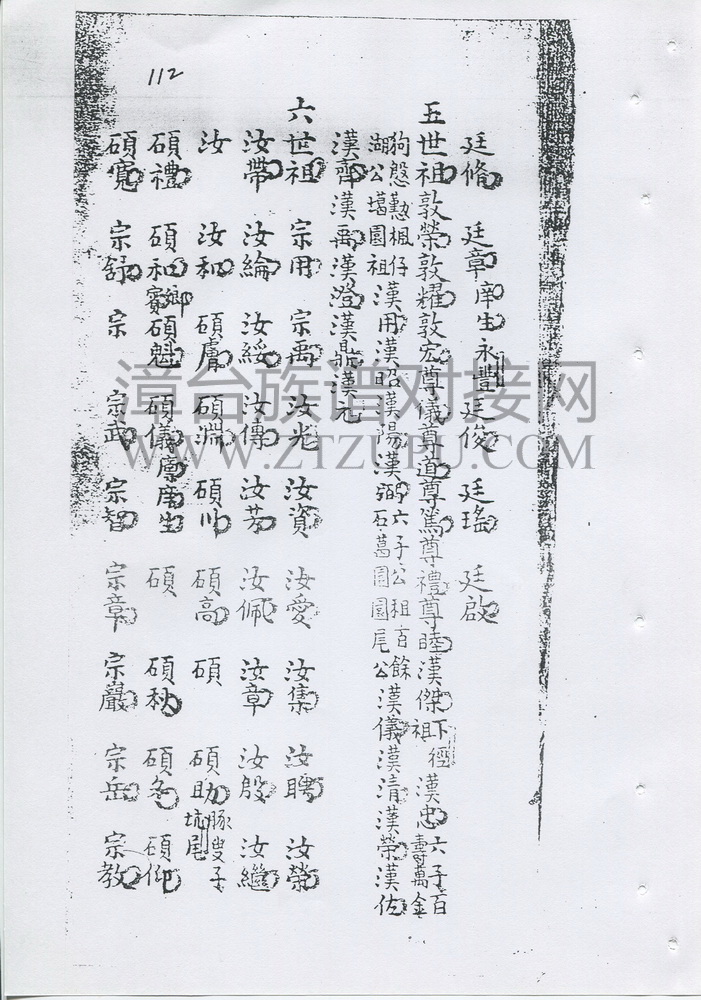 112
廷脩 廷章庠生永豐廷俊 廷瑤 廷啟
五世祖敦榮敦耀敦宏尊儀尊道尊篤尊禮尊睦漢傑祖下徑漢忠六子百壽萬金
狗慇懃楓仔湖公墈園祖漢用漢昭漢陽漢弼六子公租百餘石萬園園尾公漢儀漢清漢榮漢佐
漢齊漢禹漢澄漢鼎漢元
六世祖 宗用 宗禹 汝光 汝資 汝愛 汝集 汝聘 汝榮
汝帶 汝綸 汝綏 汝傳 汝芳 汝佩 汝章 汝殷 汝繼
汝 汝和 碩膚 碩淵 碩川 碩高 碩 碩助豚叟子坑尾
碩禮 碩和鄉賓碩魁 碩儀廩庠生 碩 碩秋 碩冬 碩仰
碩寬 宗舒 宗 宗武 宗智 宗章 宗巖 宗岳 宗教
漳台族谱对接网
WWW.ZTZUPU.COM